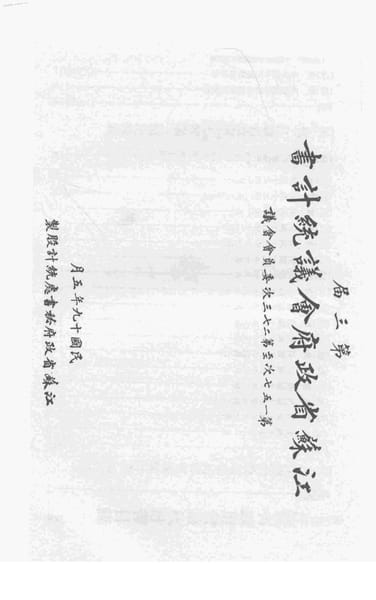 第三屆
江蘇省政府會議統計書
第一五七次至第二七三次委員會會議
民國十九年五月
江蘇省政府秘書處統計股製